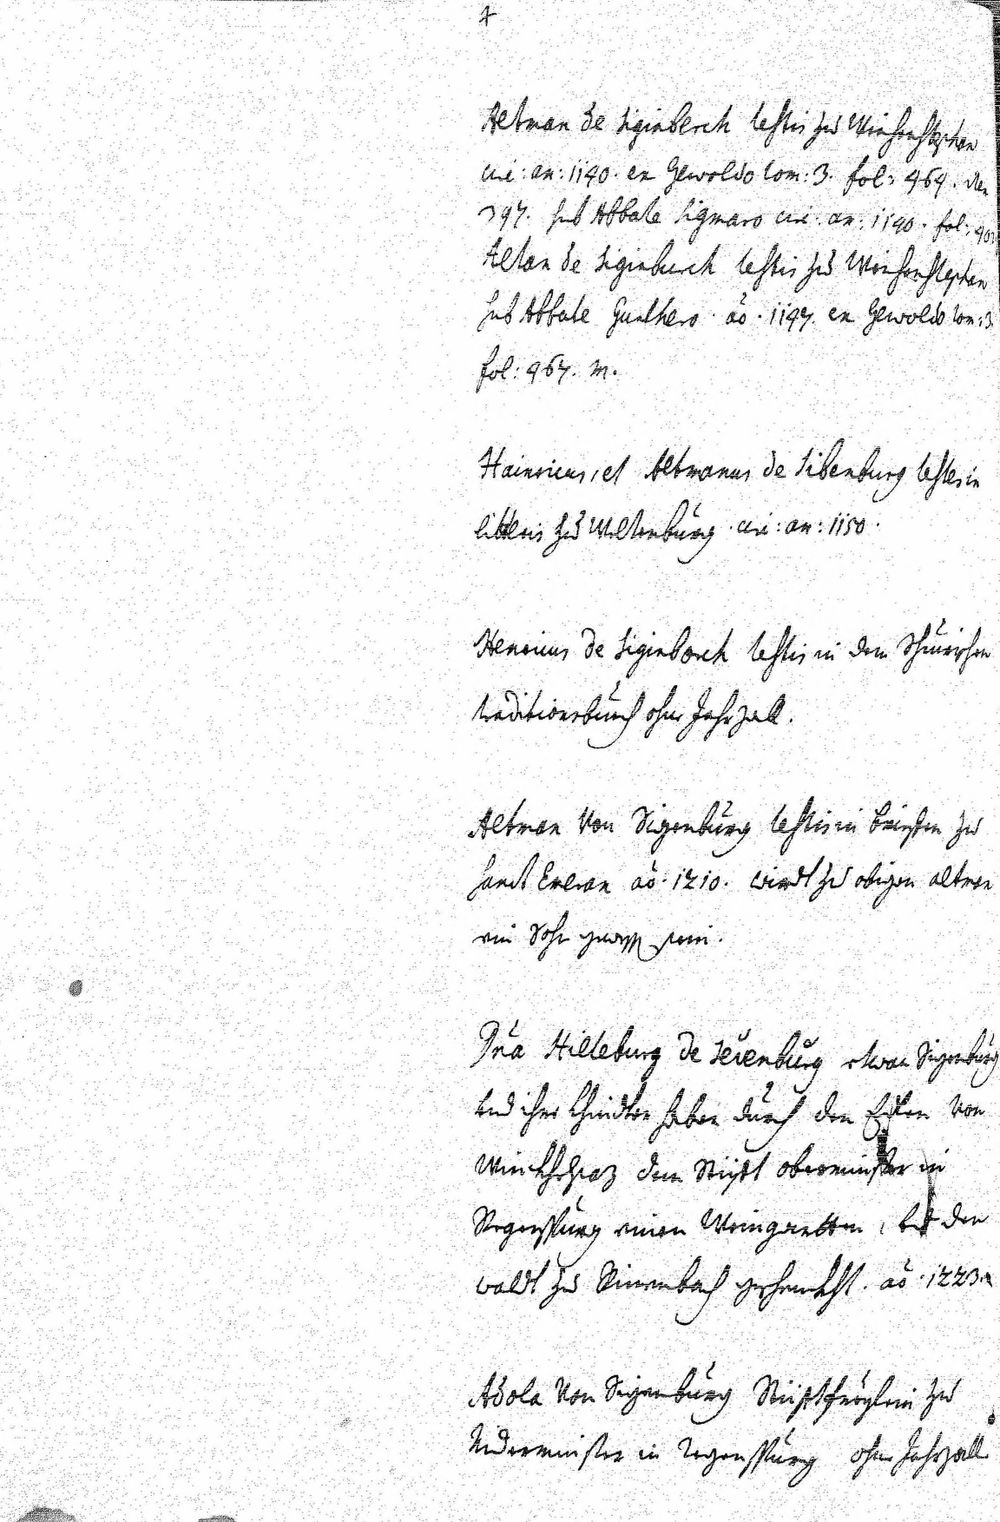 Altman de Siginberch testis zu Weichenstephen
circ: an: 1140. ex Gewoldo tom: 3. fol: 464. den
397. sub Abbate Sigmaro circ: an: 1140. fol: 403
Altan de Siginburch testis zu Weichenstephen
sub Abbate Gunthero ao. 1197. ex Gewoldo tom: 3
fol: 467. m.
Hainricus, et Altmanus de Sibenburg testes in
litteris zu Weltenburg. circ: an: 1150.
Henricus de Siginborch testis in dem Scheirischen
traditionsbuech ohne Jahrzall.
Altman von Sigenburg testis in brieffen zu
sanct Emeran ao. 1210. wirdt zu obigen altman
ein Sohn gewesst sein.
Dna Hilteburg de Seienburg etwan Sigenburg
und ihre khindter haben durch den von
dem Stüfft oberminster in
Regenspurg einen Weingartten, bei den
waldt zu geschenkht. ao. 1223.
Adola von Sigenburg Stüfftfreylein zu
Niderminster in Regenspurg ohne Jahrzall